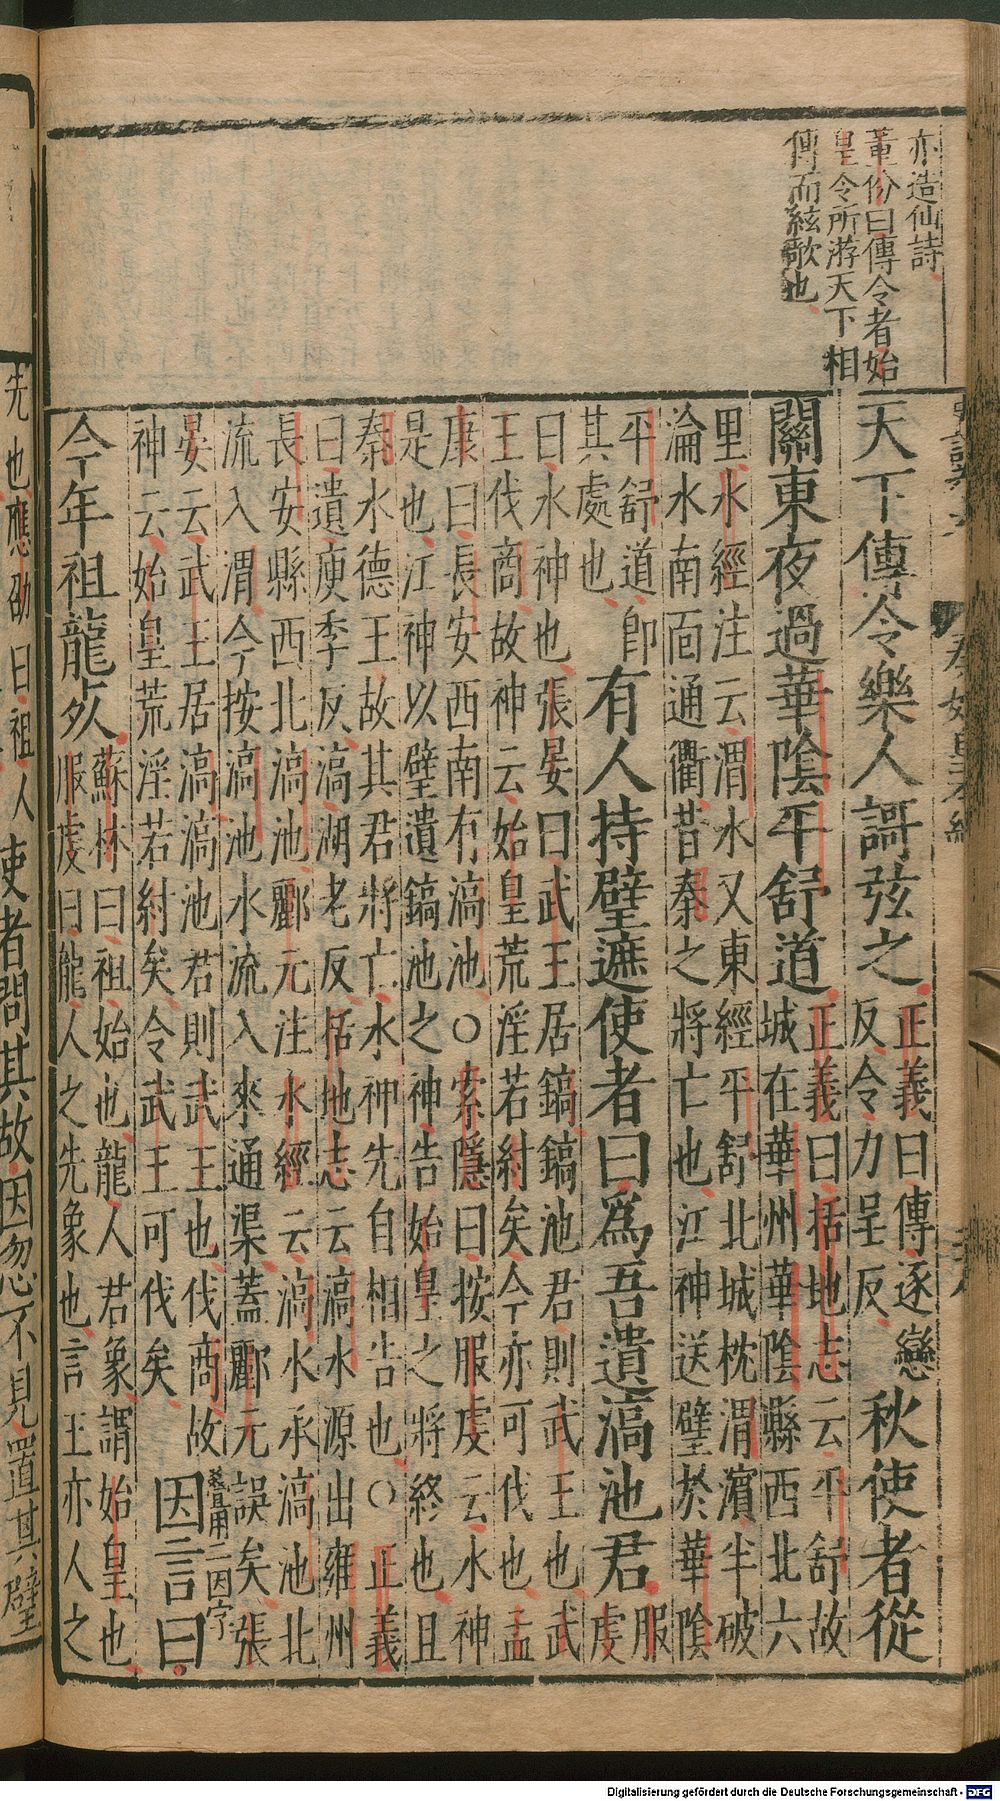 亦造仙詩
董份曰傳令者始
皇令所游天下相
傳而絃歌也
天下傳令樂人謌弦之正義曰傳逐戀
反令力呈反秋使者從
關東夜過華陰平舒道正義曰括地志云平舒故
城在華州華陰縣西北六
里水經注云渭水又東經平舒北城枕渭濱半破
淪水南面通衢昔秦之將亡也江神送璧於華陰
平舒道即
其處也有人持璧遮使者曰爲吾遺滈池君服
虔
曰水神也張晏曰武王居鎬鎬池君則武王也武
王伐商故神云始皇荒淫若紂矣今亦可伐也孟
康曰長安西南有滈池○索隱曰按服虔云水神
是也江神以璧遺鎬池之神告始皇之將終也且
秦水德王故其君將亡水神先自相告也○正義
曰遺庾季反滈湖老反括地志云滈水源出雍州
長安縣西北滈池酈元注水經云滈水承滈池北
流入渭今按滈池水流入來通渠蓋酈元誤矣張
晏云武王居滈滈池君則武王也伐商故
神云始皇荒淫若紂矣令武王可伐矣
二因字
因言曰
今年祖龍死蘇林曰祖始也龍人君象謂始皇也
服虔曰龍人之先象也言王亦人之
先也應劭曰祖人使者問其故因忽不見置其璧